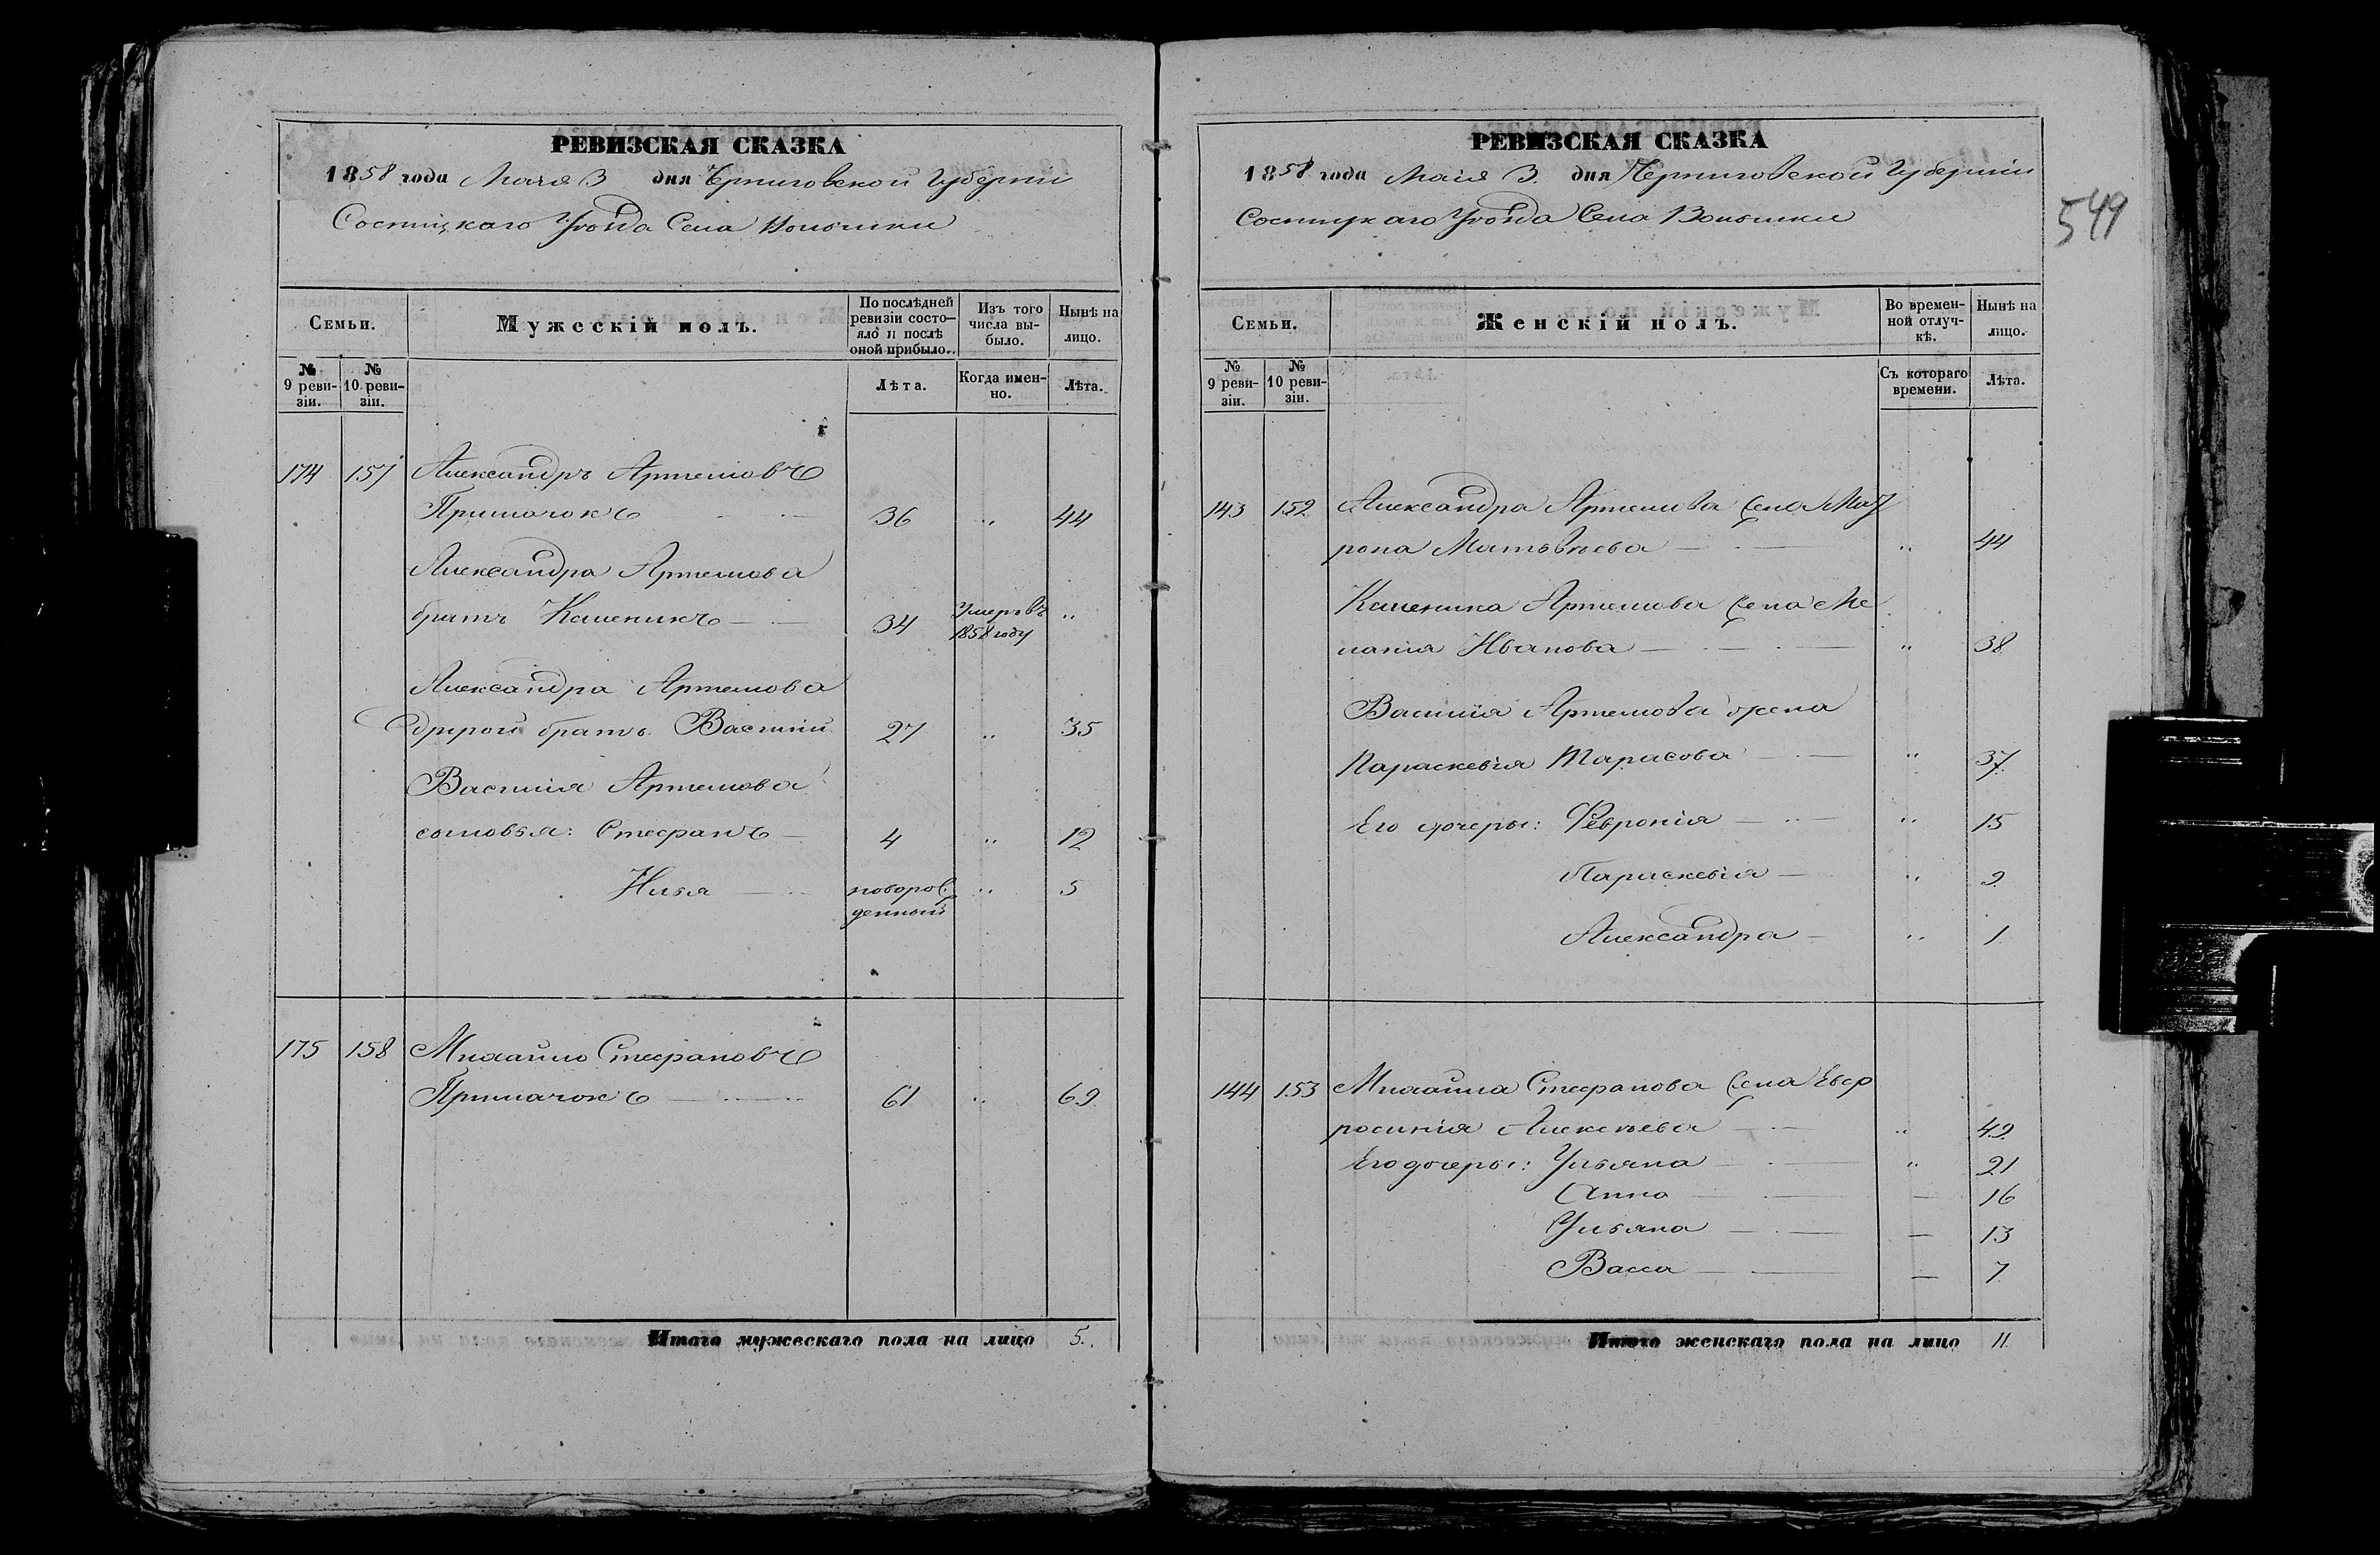 РЕВИЗСКАЯ СКАЗКА
1858 года Маія 3 дня Черниговской Губерніи
Сосницкаго Уѣзда Села Волынки
Семьи.
Мужескій полъ.
По послѣдней ревизіи состояло и послѣ оной прибыло.
Изъ того числа выбыло.
Нынѣ на лицо.
№ 9 ревизіи.
№ 10 ревизіи.
Лѣта.
Когда именно.
Лѣта.
174 157 Александръ Артемовъ
Примачокъ 36 " 44
Александра Артемова
братъ Каленикъ 34 Умеръ въ 1858 году "
Александра Артемова
другой братъ Василій 27 " 35
Василія Артемова
сыновья: Стефанъ 4 " 12
Илья новорожденный " 5
175 158 Михайло Стефановъ
Примачокъ 61 " 69
Итого мужескаго пола на лицо 5.
РЕВИЗСКАЯ СКАЗКА
1858 года Маія 3. дня Черниговской Губерніи
Сосницкаго Уѣзда Села Волынки
549
Семьи.
Женскій полъ.
Во временной отлучкѣ.
Нынѣ на лицо.
№ 9 ревизіи.
№ 10 ревизіи.
Съ котораго времени.
Лѣта.
143 152 Александра Артемова жена Мат
рона Матвѣева " 44
Каленика Артемова жена Ме
ланія Иванова " 38
Василія Артемова жена
Параскевія Тарасова " 37
Его дочеры: Февронія " 15
Параскевія " 9
Александра " 1
144 153 Михайла Стефанова жена Евф
росинія Алексѣева " 49
Его дочеры: Ульяна " 21
Анна — 16
Ульяна — 13
Васса — 7
Итого женскаго пола на лицо 11